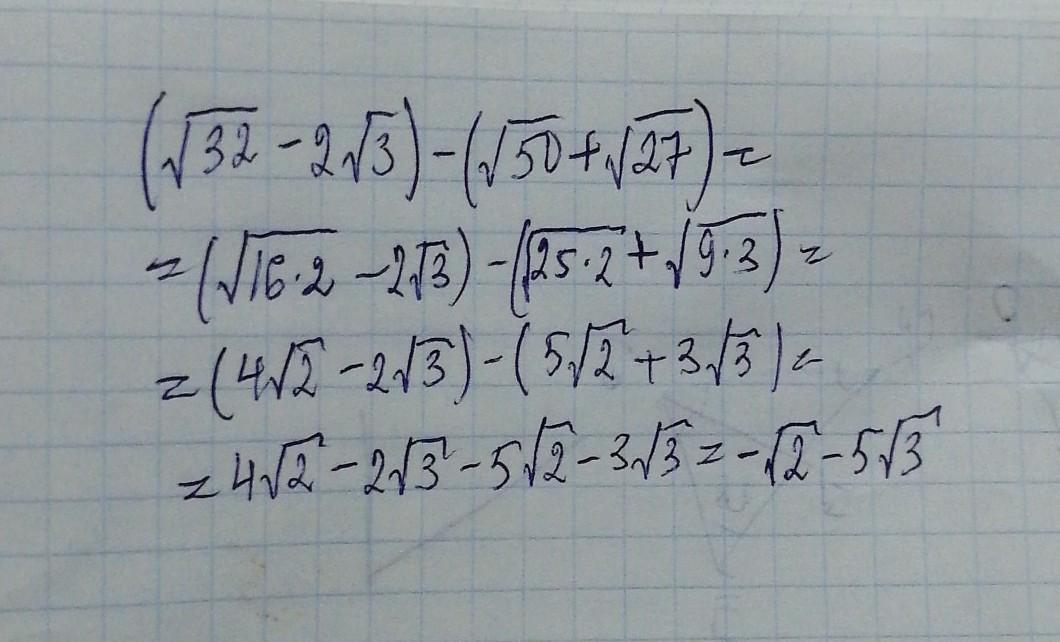 (√32 - 2√3) - (√50 + √27) =
= (√16·2 - 2√3) - (√25·2 + √9·3) =
= (4√2 - 2√3) - (5√2 + 3√3) =
= 4√2 - 2√3 - 5√2 - 3√3 = -√2 - 5√3